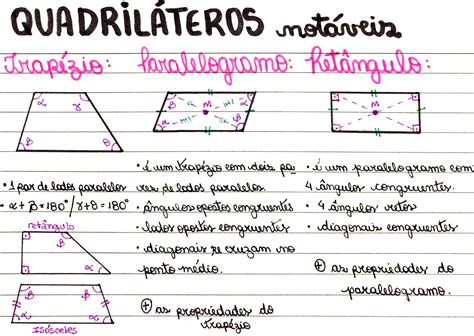 QUADRILÁTEROS notáveis
Trapézio: Paralelogramo: Retângulo:
α γ
θ β
β α
M
α β
M
• 1 par de lados paralelos
• α + β = 180° / γ + θ = 180°
retângulo
β
α
β β
α α
Isósceles
• é um trapézio com dois pa
res de lados paralelos
• ângulos opostos congruentes
• lados opostos congruentes
• diagonais se cruzam no
ponto médio.
+ as propriedades do
trapézio
• é um paralelogramo com
4 ângulos congruentes.
• 4 ângulos retos
• diagonais congruentes
+ as propriedades do
paralelogramo.